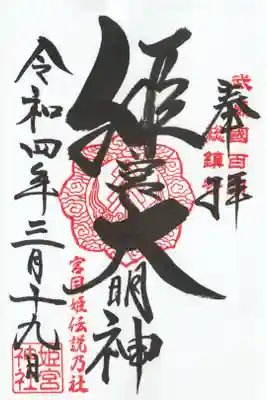 奉拝
武蔵國百間
総鎮守
姫宮大明神
宮目姫伝説乃社
令和四年三月十九日
姫宮
神社